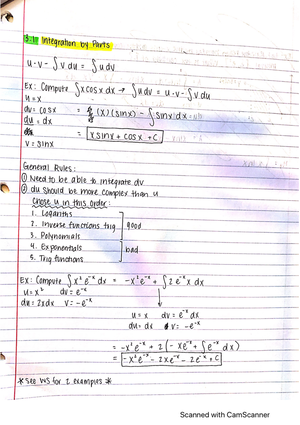 3.1: Integration by Parts
u·v - ∫v du = ∫u dv
Ex: Compute ∫x cos x dx → ∫u dv = u·v - ∫v du
u = x
dv = cosx = (x)(sinx) - ∫sinx dx
du = dx
= x sinx + cosx + C
v = sinx
General Rules:
① Need to be able to integrate dv
② du should be more complex than u
Chose u in this order:
1. Logariths
2. Inverse functions trig good
3. Polynomials
4. Exponentials bad
5. Trig functions
Ex: Compute ∫x²e⁻ˣ dx = -x²e⁻ˣ + ∫2e⁻ˣ x dx
u = x² dv = e⁻ˣ
du = 2xdx v = -e⁻ˣ
u = x dv = e⁻ˣ dx
du = dx v = -e⁻ˣ
= -x²e⁻ˣ + 2(-xe⁻ˣ + ∫e⁻ˣ dx)
= -x²e⁻ˣ - 2xe⁻ˣ - 2e⁻ˣ + C
*See WS for 2 examples*
Scanned with CamScanner